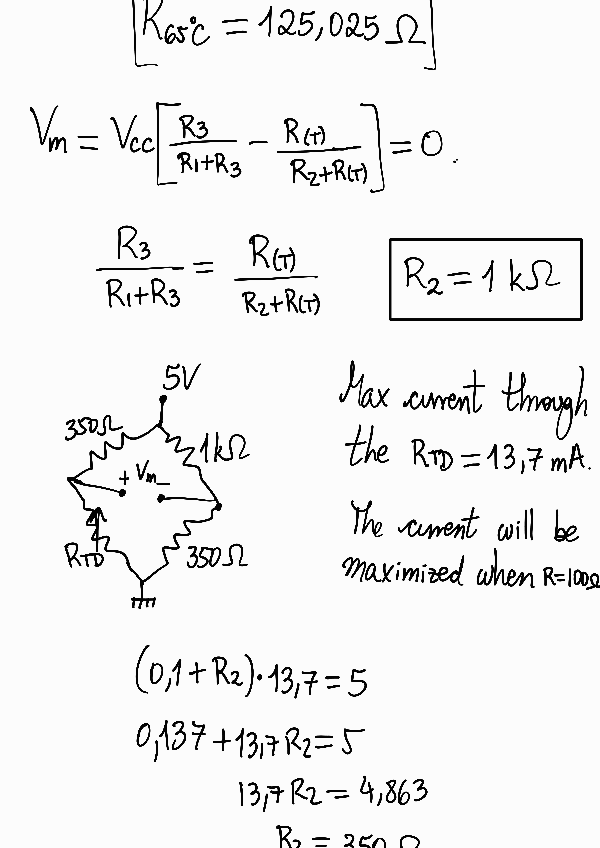 [R65°C = 125,025 Ω]
Vm = Vcc [R3/(R1+R3) − R(T)/(R2+R(T))] = 0.
R3/(R1+R3) = R(T)/(R2+R(T))
R2 = 1 kΩ
5V
350Ω
1kΩ
+ Vm −
RTD
350Ω
Max current through
the RTD = 13,7 mA.
The current will be
maximized when R=100Ω
(0,1 + R2)·13,7 = 5
0,137 + 13,7 R2 = 5
13,7 R2 = 4,863
R2 = 350 Ω